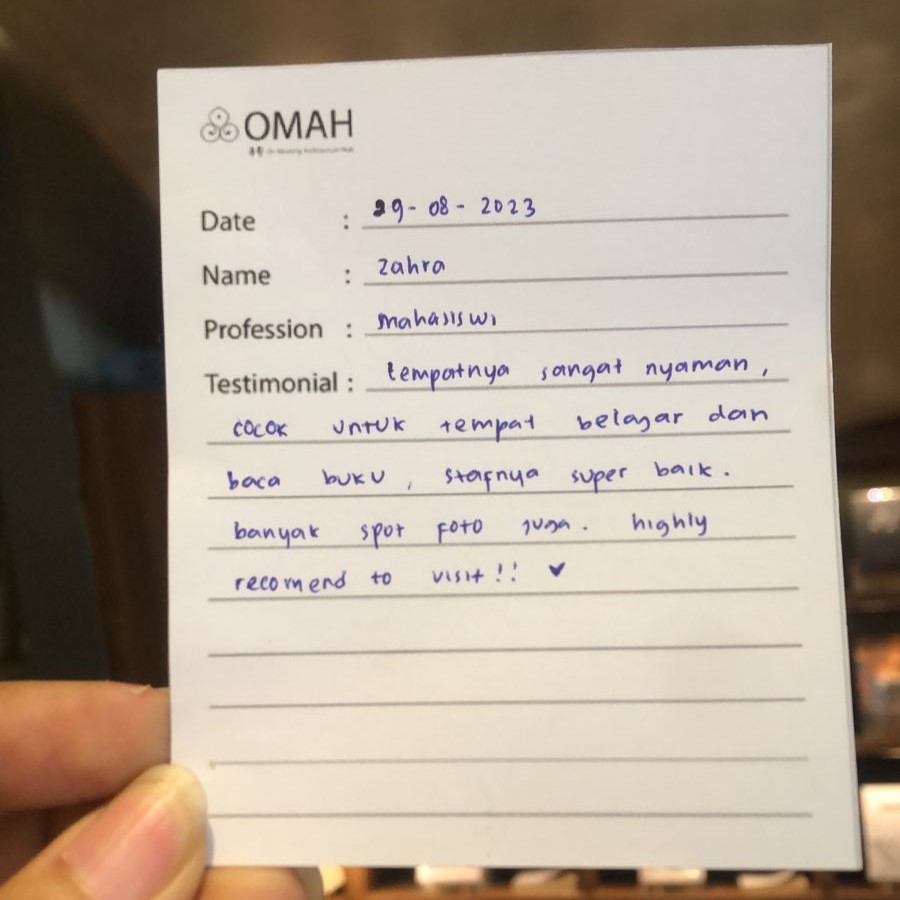 OMAH
Date : 29-08-2023
Name : Zahra
Profession : Mahasiswi
Testimonial : tempatnya sangat nyaman,
cocok untuk tempat belajar dan
baca buku, stafnya super baik.
banyak spot foto juga. highly
recomend to visit!! ♥